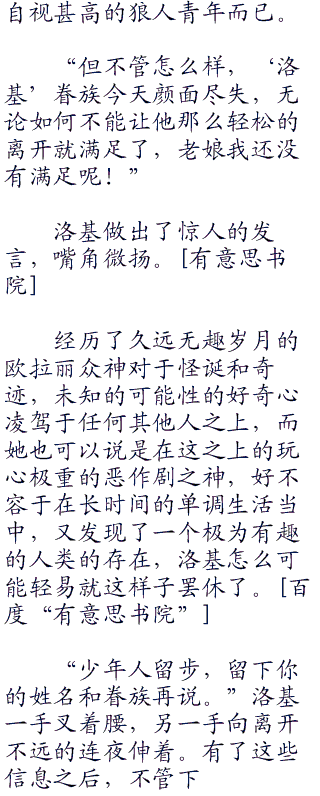 自视甚高的狼人青年而已。
“但不管怎么样，‘洛
基’眷族今天颜面尽失，无
论如何不能让他那么轻松的
离开就满足了，老娘我还没
有满足呢！”
洛基做出了惊人的发
言，嘴角微扬。[有意思书
院]
经历了久远无趣岁月的
欧拉丽众神对于怪诞和奇
迹，未知的可能性的好奇心
凌驾于任何其他人之上，而
她也可以说是在这之上的玩
心极重的恶作剧之神，好不
容于在长时间的单调生活当
中，又发现了一个极为有趣
的人类的存在，洛基怎么可
能轻易就这样子罢休了。[百
度“有意思书院”]
“少年人留步，留下你
的姓名和眷族再说。”洛基
一手叉着腰，另一手向离开
不远的连夜伸着。有了这些
信息之后，不管下